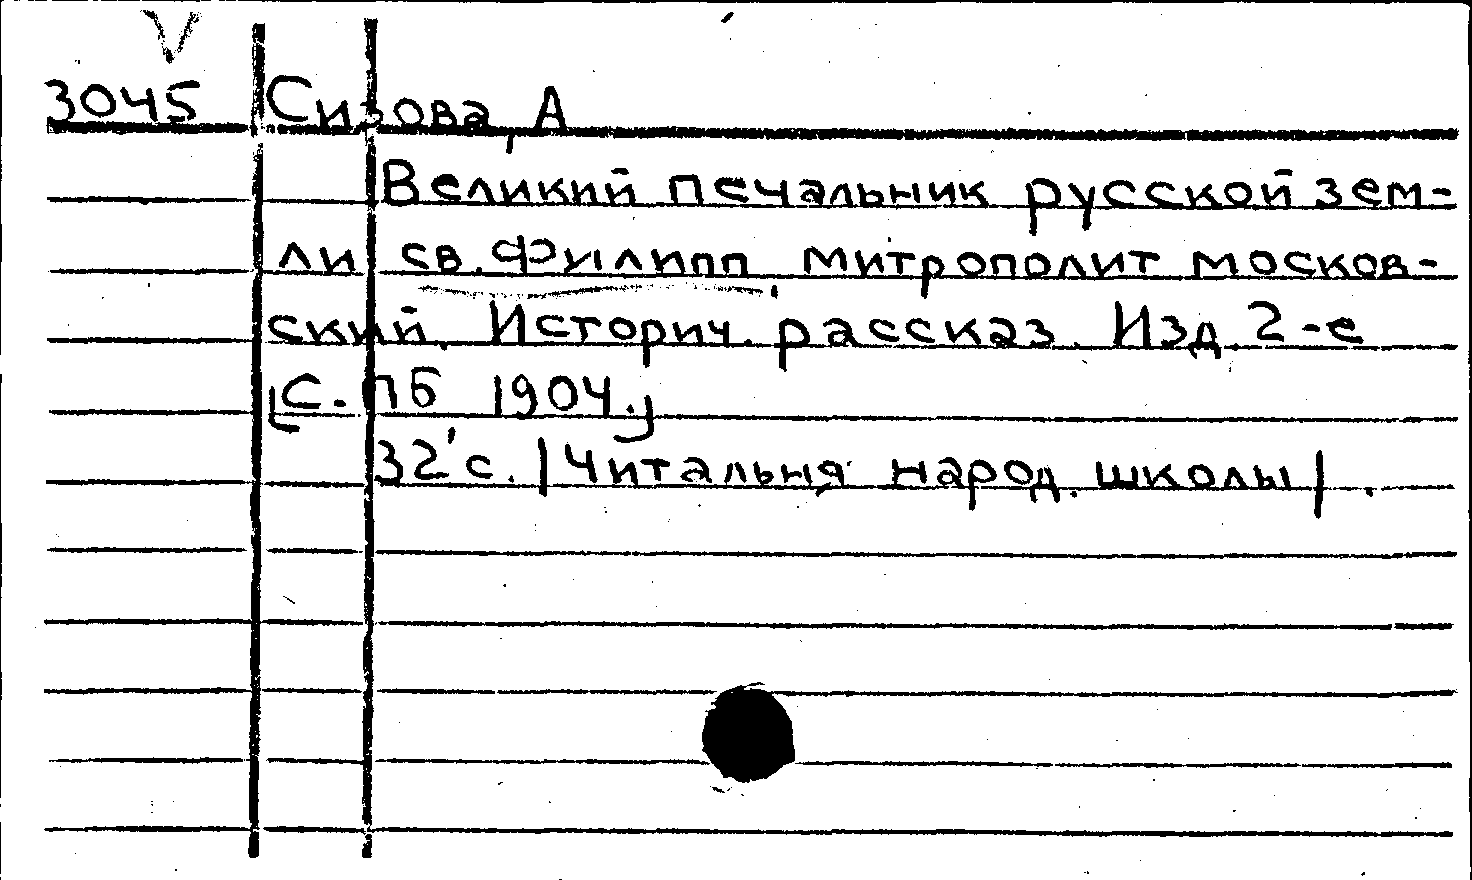 V
3045 Сизова, А
Великий печальник русской зем-
ли св. Филипп, митрополит москов-
ский. Историч. рассказ. Изд. 2-е
[С.-Пб 1904.]
32 с. /Читальня народ. школы/.